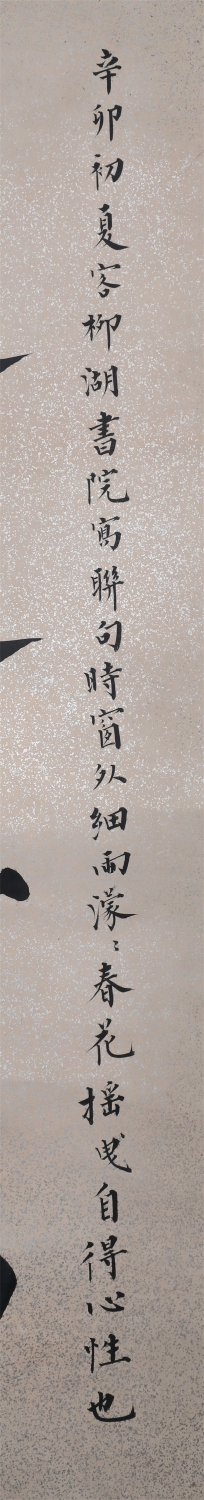 辛卯初夏客柳湖書院寫聯句時窗外細雨濛〻春花摇曳自得心性也